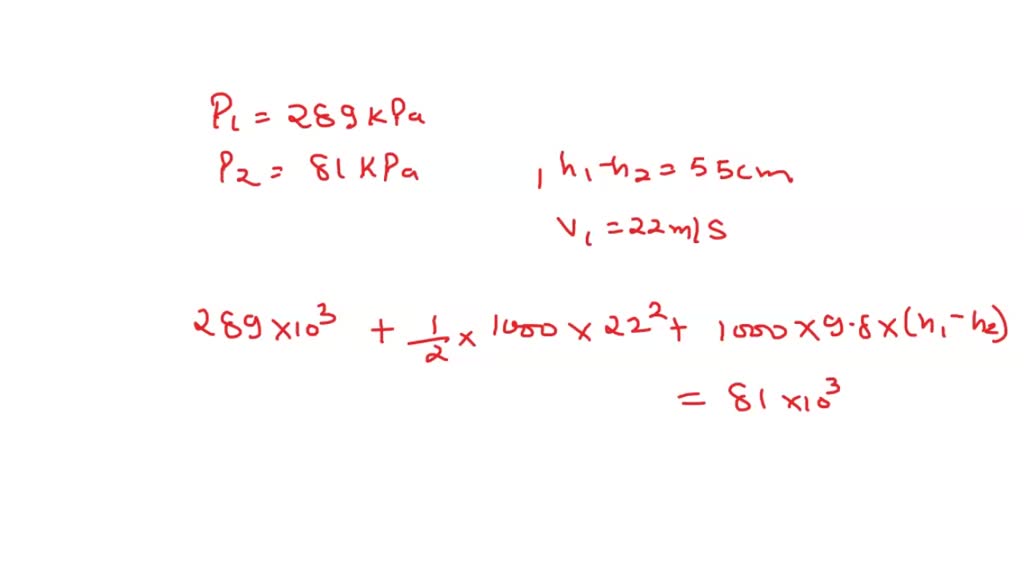 P₁ = 289 kPa
P₂ = 81 KPa , h₁-h₂ = 55cm
V₁ = 22 m/s
289 × 10³ + 1/2 × 1000 × 22² + 1000 × 9.8 × (h₁ - h₂)
= 81 × 10³